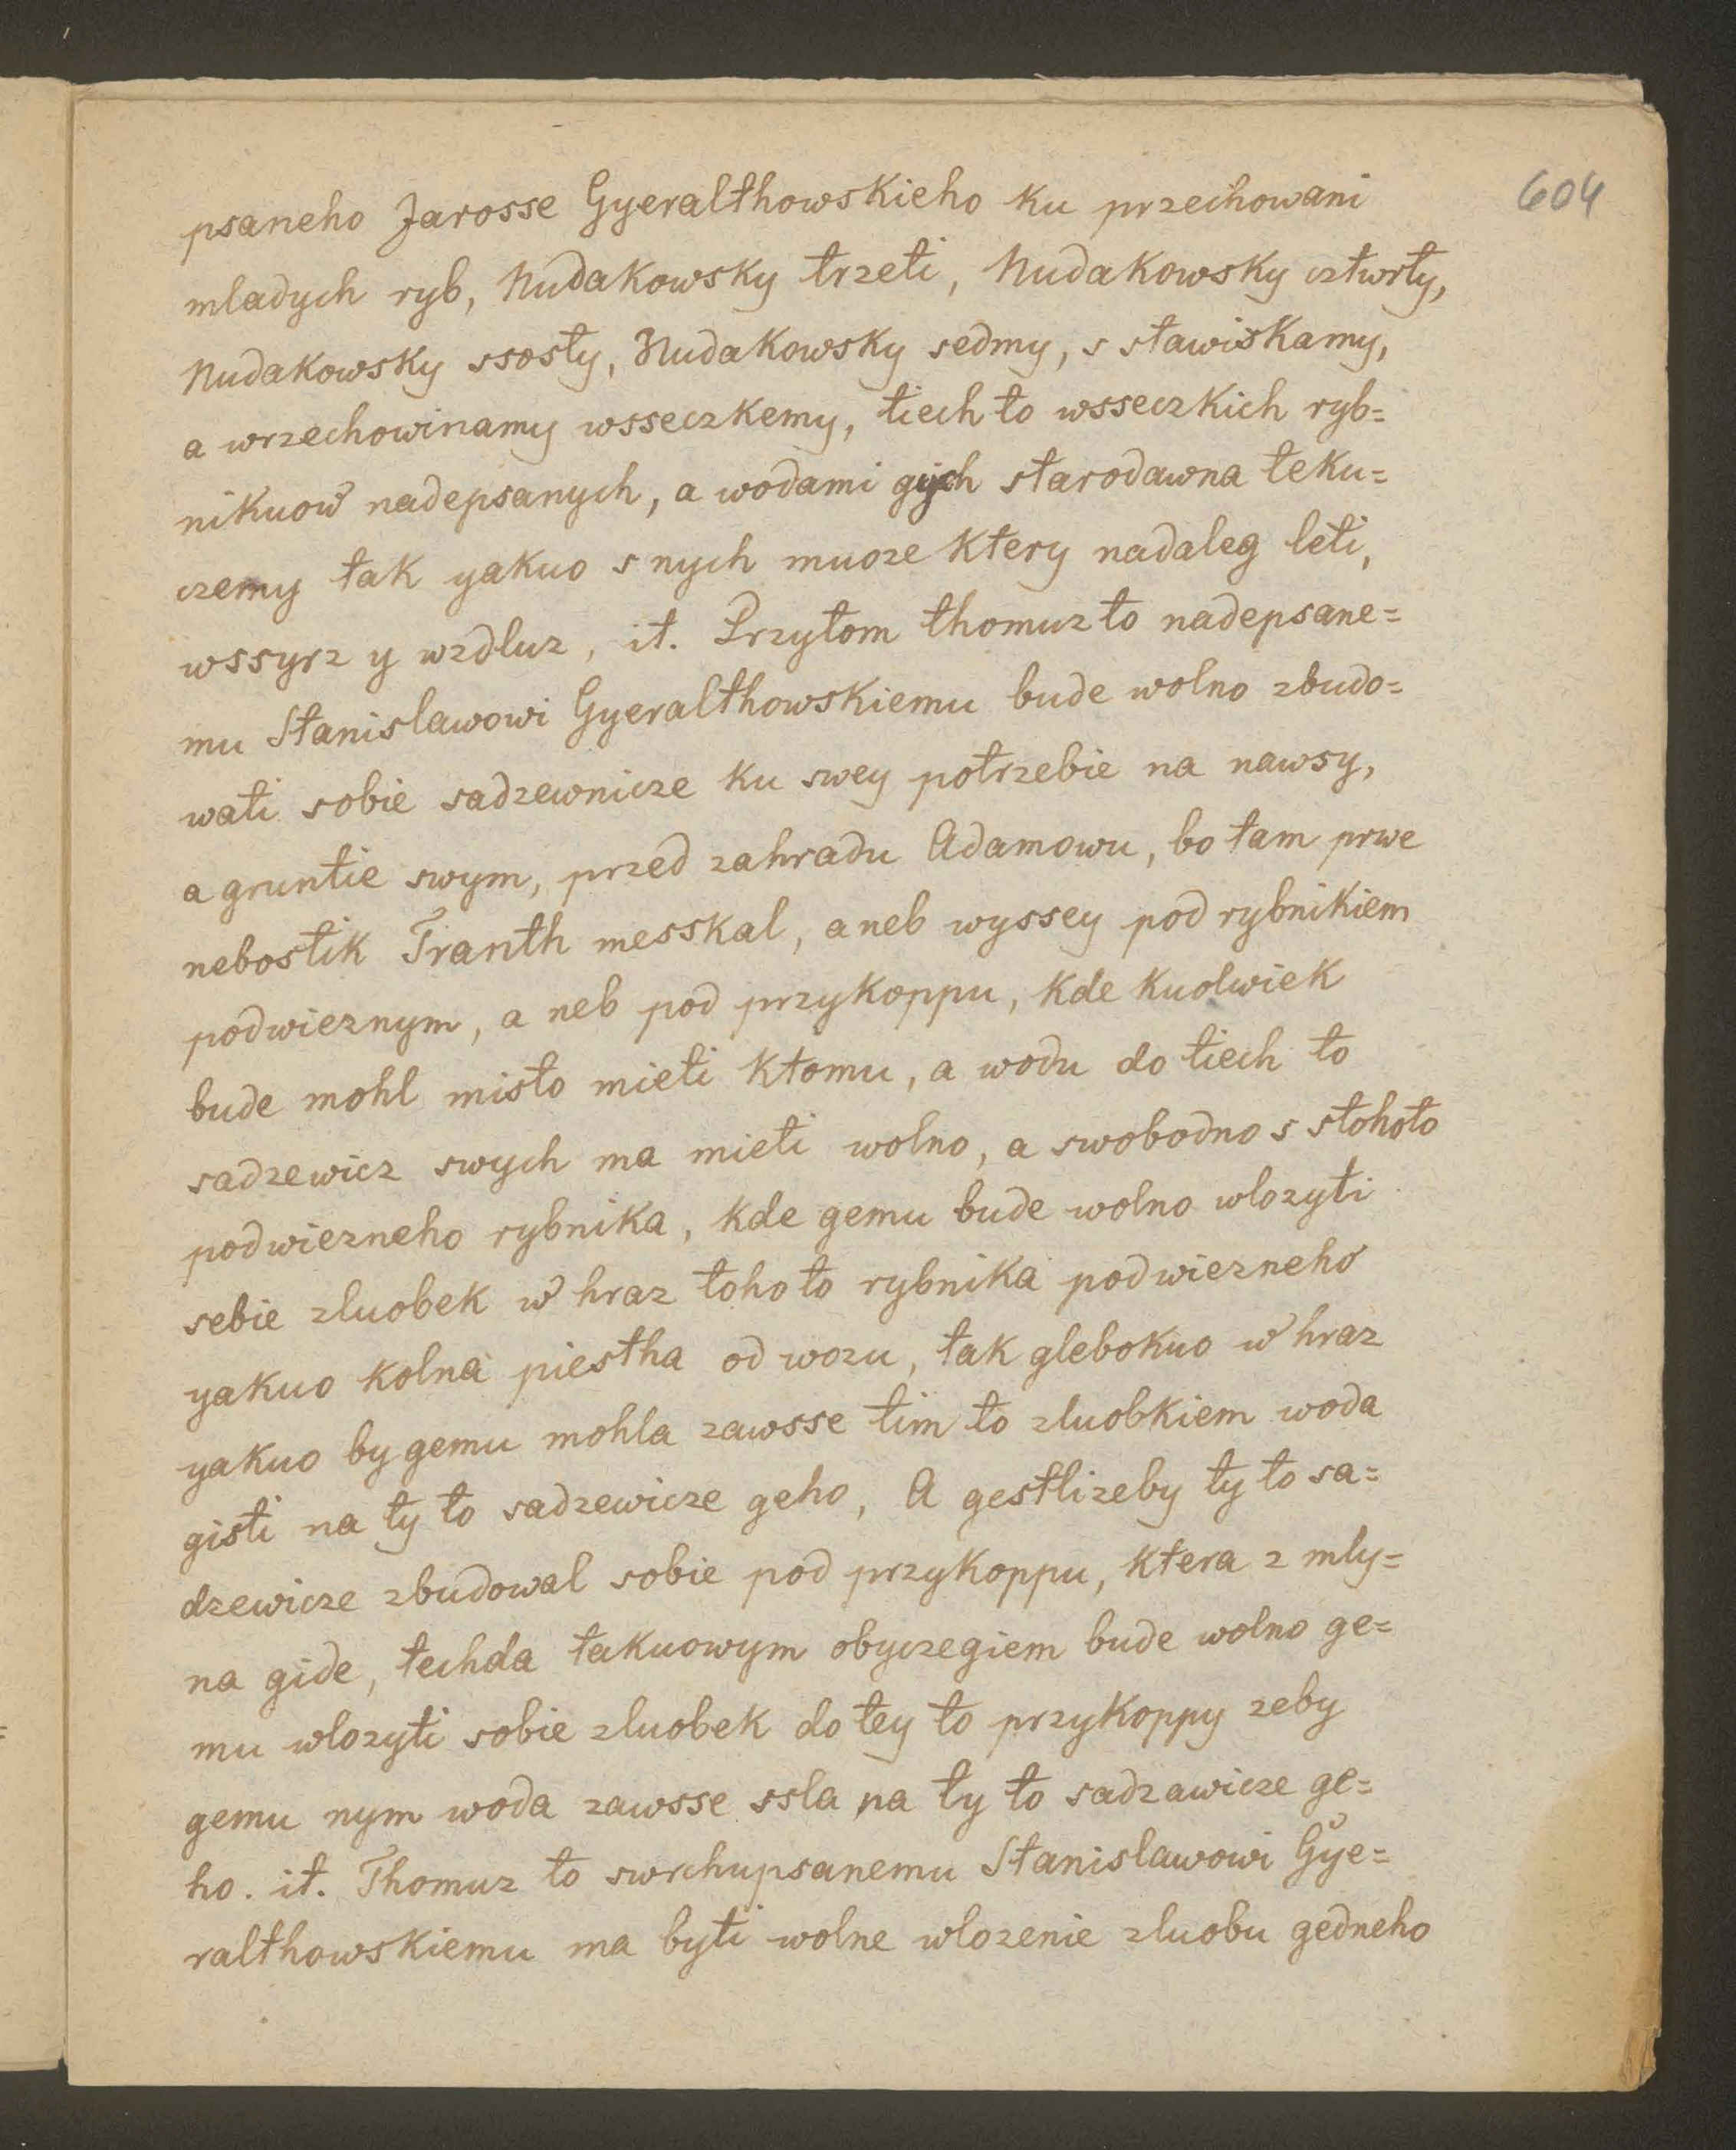 604
psaneho Jarosse Gyeralthowskieho ku przechowani
mladych ryb, Nudakowsky trzeti, Nudakowsky cztwrty,
Nudakowsky ssosty, Nudakowsky sedmy, s stawiskamy,
a wrzechowinamy wsseczkemy, tiech to wsseczkich ryb=
nikuow nadepsanych, a wodami gych starodawna teku=
czemy tak yakuo s nych muoze ktery nadaleg leti,
wssyrz y wzdluz, it. Przytom thomuz to nadepsane=
mu Stanislawowi Gyeralthowskiemu bude wolno zbudo=
wati sobie sadzewnicze ku swey potrzebie na nawsy,
a gruntie swym, przed zahradu Adamowu, bo tam prwe
nebostik Tranth messkal, aneb wyssey pod rybnikiem
podwieznym, a neb pod przykoppu, kde kuolwiek
bude mohl misto mieti ktomu, a wodu do tiech to
sadzewicz swych ma mieti wolno, a swobodno s stohoto
podwiezneho rybnika, kde gemu bude wolno wlozyti
sebie zluobek w hraz toho to rybnika podwiezneho
yakuo kolna piestha od wozu, tak glebokuo w hraz
yakuo by gemu mohla zawsse tim to zluobkiem woda
gisti na ty to sadzewicze geho, A gestlizeby ty to sa=
dzewicze zbudowal sobie pod przykoppu, ktera z mly=
na gide, techda takuowym obyczegiem bude wolno ge=
mu wlozyti sobie zluobek do tey to przykoppy zeby
gemu nym woda zawsse ssla na ty to sadzawicze ge=
ho. it. Thomuz to swrchupsanemu Stanislawowi Gye=
ralthowskiemu ma byti wolne wlozenie zluobu gedneho